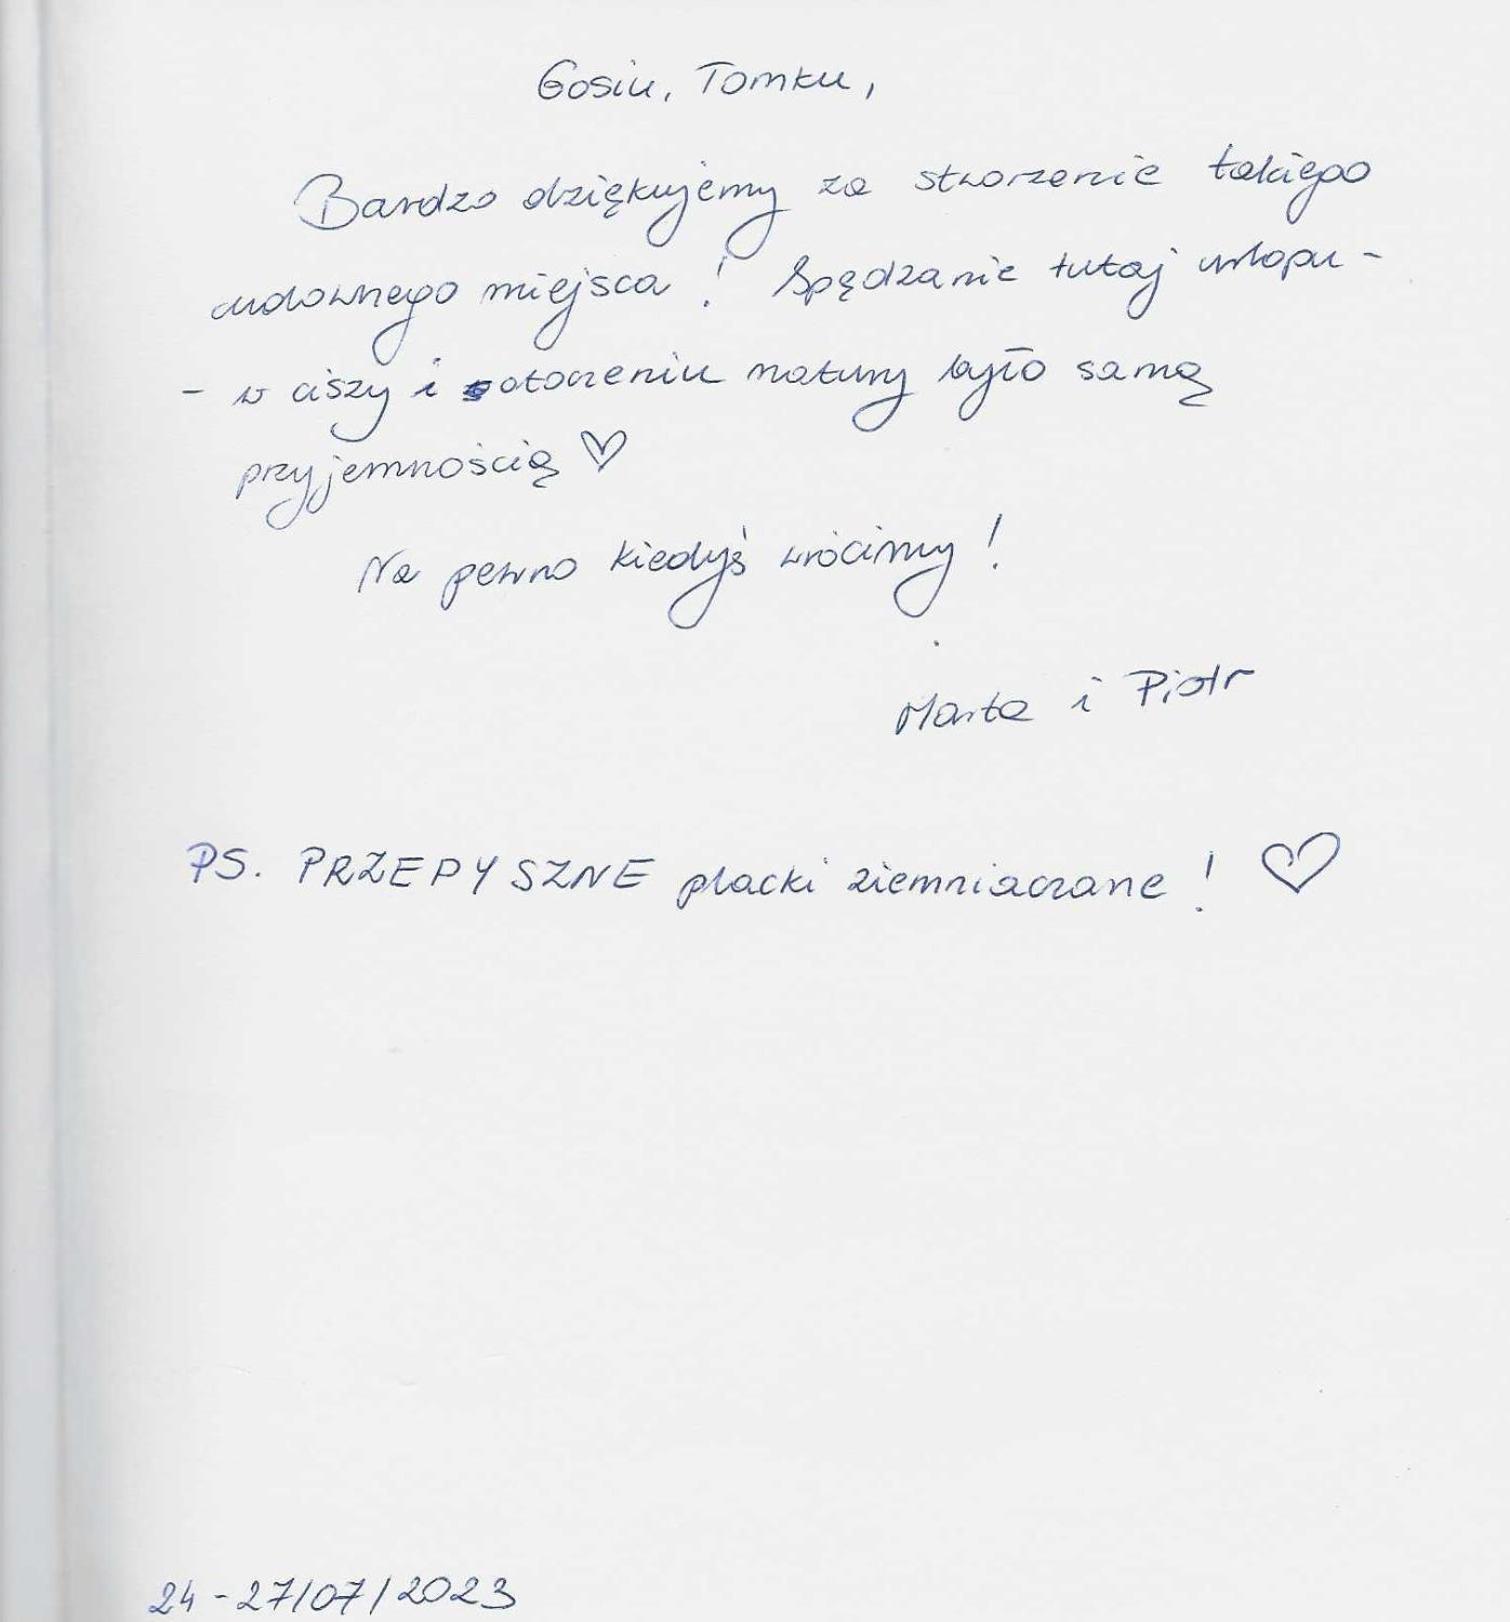 Gosiu, Tomku,
Bardzo dziękujemy za stworzenie takiego
cudownego miejsca! Spędzanie tutaj urlopu -
- w ciszy i otoczeniu natury było samą
przyjemnością ♡
Na pewno kiedyś wrócimy!
Marta i Piotr
PS. PRZEPYSZNE placki ziemniaczane! ♡
24-27/07/2023